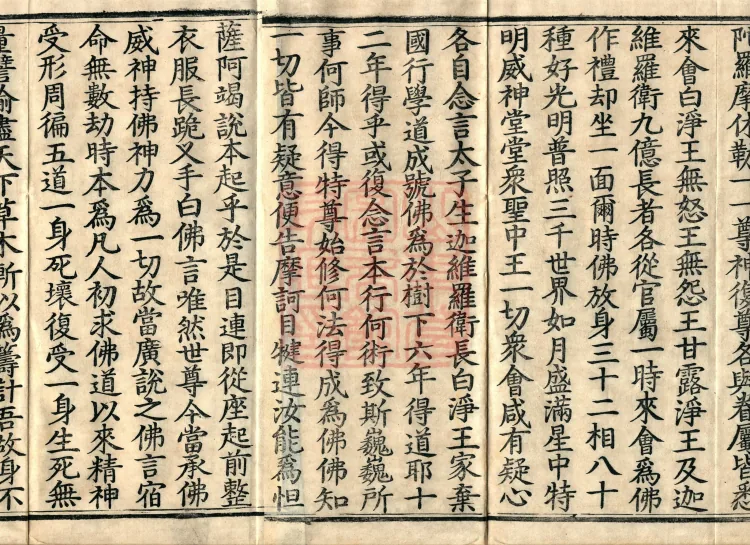 陀羅摩休勒一一尊神復尊各與眷屬皆悉
來會白淨王無怒王無怨王甘露淨王及迦
維羅衛九億長者各從官屬一時來會爲佛
作禮却坐一面爾時佛放身三十二相八十
種好光明普照三千世界如月盛滿星中特
明威神堂堂衆聖中王一切衆會咸有疑心
各自念言太子生迦維羅衛長白淨王家棄
國行學道成號佛爲於樹下六年得道耶十
二年得乎或復念言本行何術致斯巍巍所
事何師今得特尊始修何法得成爲佛佛知
一切皆有疑意便告摩訶目犍連汝能爲怛
薩阿竭說本起乎於是目連即從座起前整
衣服長跪叉手白佛言唯然世尊今當承佛
威神持佛神力爲一切故當廣說之佛言宿
命無數劫時本爲凡人初求佛道以來精神
受形周徧五道一身死壞復受一身生死無
量譬喻盡天下草木斬以爲籌計吾故身不